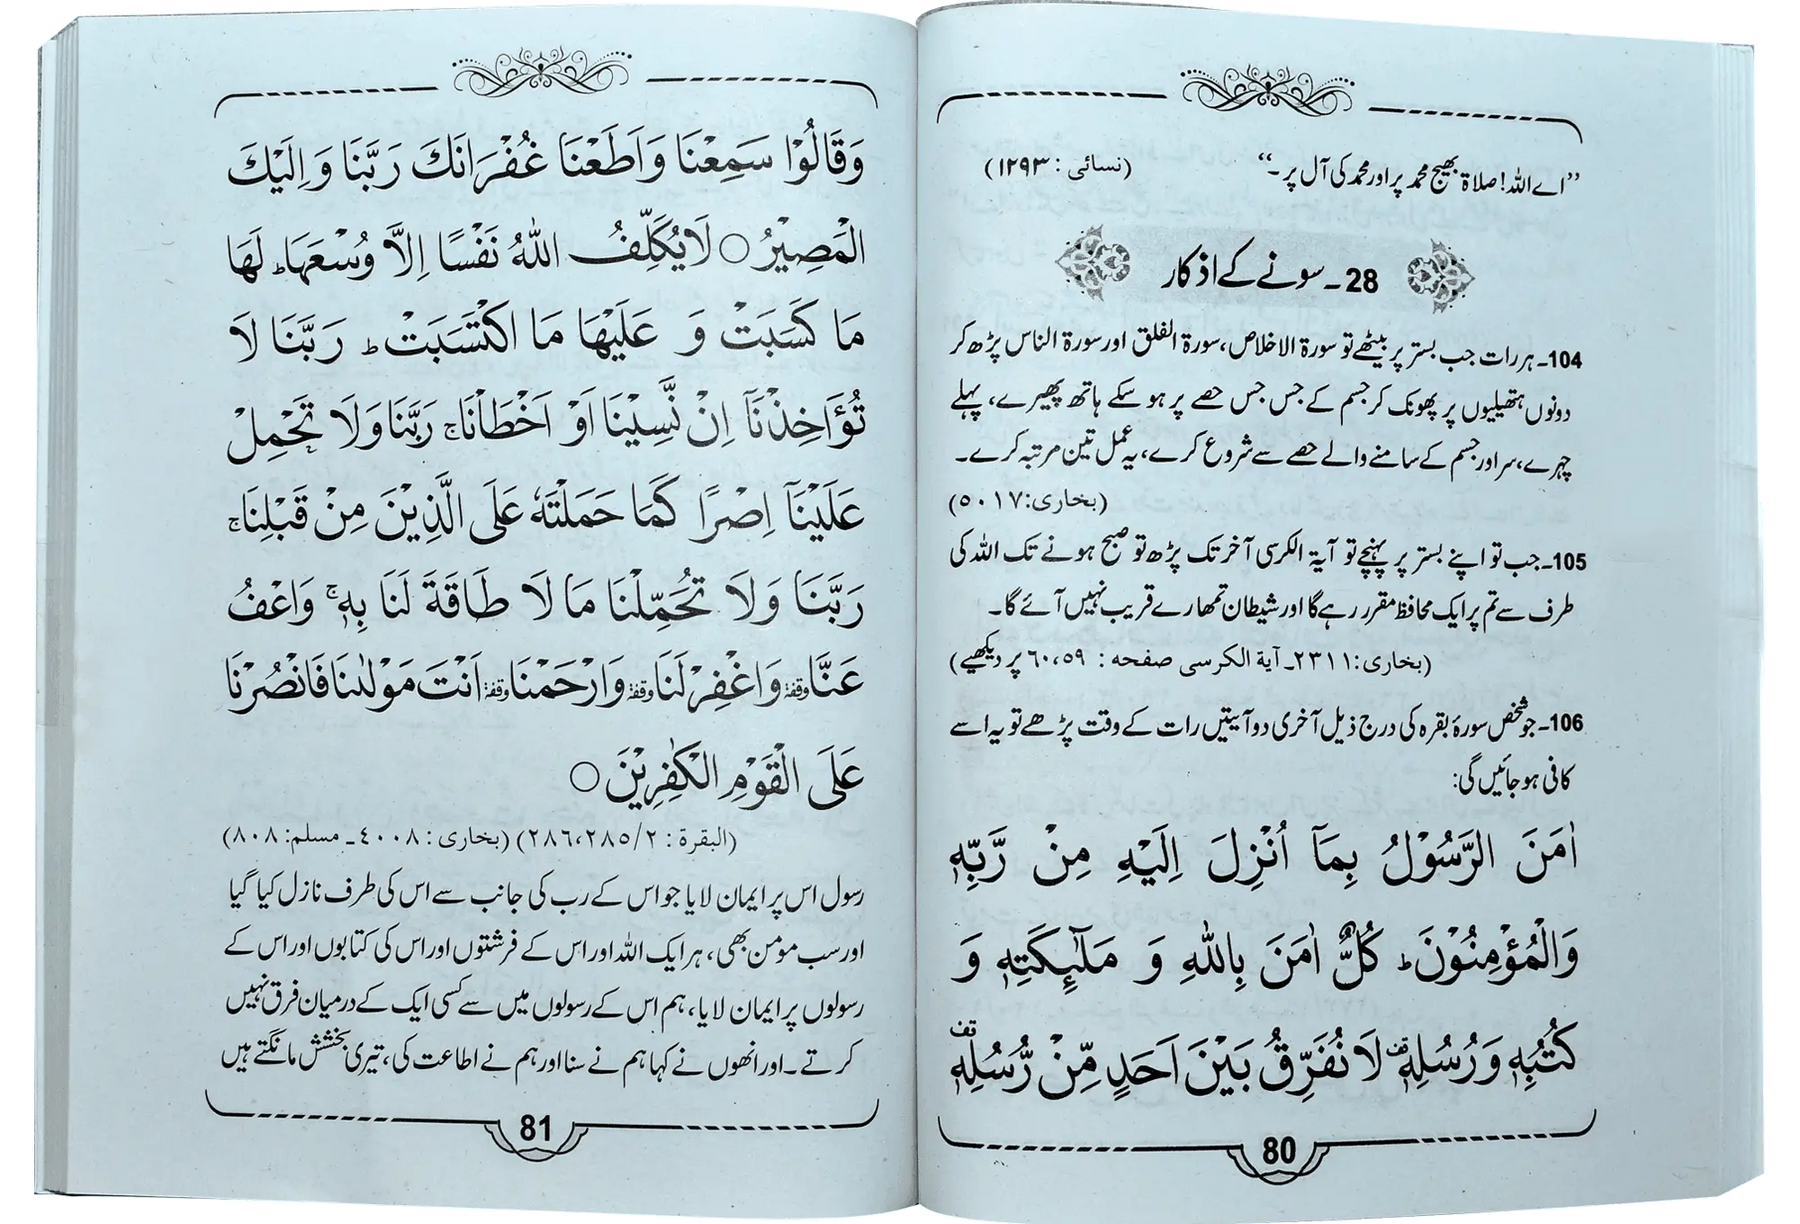 ”اے اللہ! صلاۃ بھیج محمد پر اور محمد کی آل پر۔“ (نسائی : ۱۲۹۳)
28۔ سونے کے اذکار
104۔ ہر رات جب بستر پر بیٹھے تو سورۃ الاخلاص، سورۃ الفلق اور سورۃ الناس پڑھ کر
دونوں ہتھیلیوں پر پھونک کر جسم کے جس جس حصے پر ہو سکے ہاتھ پھیرے، پہلے
چہرے، سر اور جسم کے سامنے والے حصے سے شروع کرے، یہ عمل تین مرتبہ کرے۔
(بخاری: ۵۰۱۷)
105۔ جب تو اپنے بستر پر پہنچے تو آیۃ الکرسی آخر تک پڑھ تو صبح ہونے تک اللہ کی
طرف سے تم پر ایک محافظ مقرر رہے گا اور شیطان تمھارے قریب نہیں آئے گا۔
(بخاری: ۲۳۱۱۔ آیة الکرسی صفحه : ۶۰،۵۹ پر دیکھیے)
106۔ جو شخص سورۂ بقرہ کی درج ذیل آخری دو آیتیں رات کے وقت پڑھے تو یہ اسے
کافی ہو جائیں گی:
اٰمَنَ الرَّسُوْلُ بِمَاۤ اُنْزِلَ اِلَيْهِ مِنْ رَّبِّهٖ
وَالْمُؤْمِنُوْنَ ؕ كُلٌّ اٰمَنَ بِاللّٰهِ وَ مَلٰٓىِٕكَتِهٖ وَ
كُتُبِهٖ وَرُسُلِهٖ قف لَا نُفَرِّقُ بَيْنَ اَحَدٍ مِّنْ رُّسُلِهٖ قف
80
وَقَالُوْا سَمِعْنَا وَاَطَعْنَا غُفْرَانَكَ رَبَّنَا وَاِلَيْكَ
الْمَصِيْرُ ○ لَا يُكَلِّفُ اللّٰهُ نَفْسًا اِلَّا وُسْعَهَا ؕ لَهَا
مَا كَسَبَتْ وَ عَلَيْهَا مَا اكْتَسَبَتْ ؕ رَبَّنَا لَا
تُؤَاخِذْنَاۤ اِنْ نَّسِيْنَاۤ اَوْ اَخْطَاْنَا ۚ رَبَّنَا وَلَا تَحْمِلْ
عَلَيْنَاۤ اِصْرًا كَمَا حَمَلْتَهٗ عَلَى الَّذِيْنَ مِنْ قَبْلِنَا ۚ
رَبَّنَا وَلَا تُحَمِّلْنَا مَا لَا طَاقَةَ لَنَا بِهٖ ۚ وَاعْفُ
عَنَّا وقفة وَاغْفِرْ لَنَا وقفة وَارْحَمْنَا وقفة اَنْتَ مَوْلٰىنَا فَانْصُرْنَا
عَلَى الْقَوْمِ الْكٰفِرِيْنَ ○
(البقرة : ۲۸۶،۲۸۵/۲) (بخاری : ۴۰۰۸۔ مسلم: ۸۰۸)
رسول اس پر ایمان لایا جو اس کے رب کی جانب سے اس کی طرف نازل کیا گیا
اور سب مومن بھی، ہر ایک اللہ اور اس کے فرشتوں اور اس کی کتابوں اور اس کے
رسولوں پر ایمان لایا، ہم اس کے رسولوں میں سے کسی ایک کے درمیان فرق نہیں
کرتے۔ اور انھوں نے کہا ہم نے سنا اور ہم نے اطاعت کی، تیری بخشش مانگتے ہیں
81